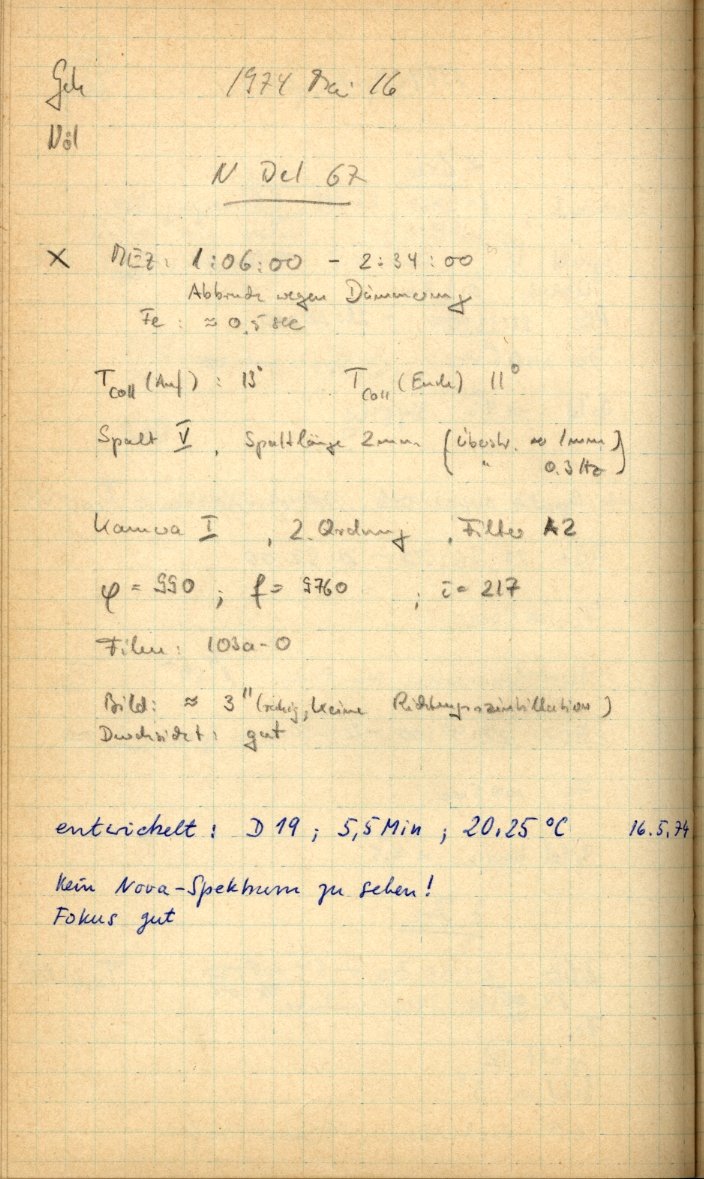 Geh 1974 Mai 16
Nöl
N Del 67
× MEZ: 1:06:00 - 2:34:00
Abbruch wegen Dämmerung
Fe : ≈ 0,5 sec
T_Coll (Anf) : 13° T_Coll (Ende) 11°
Spalt V , Spaltlänge 2mm (Überstr. ≈ 1mm)
" 0.3 Hz
Kamera I , 2. Ordnung , Filter A2
φ = 990 ; f = 9760 ; i = 217
Film: 103a-O
Bild: ≈ 3" (ruhig, keine Richtungsszintillation)
Durchsicht: gut
entwickelt: D 19 ; 5,5 Min ; 20,25 °C 16.5.74
Kein Nova-Spektrum zu sehen!
Fokus gut